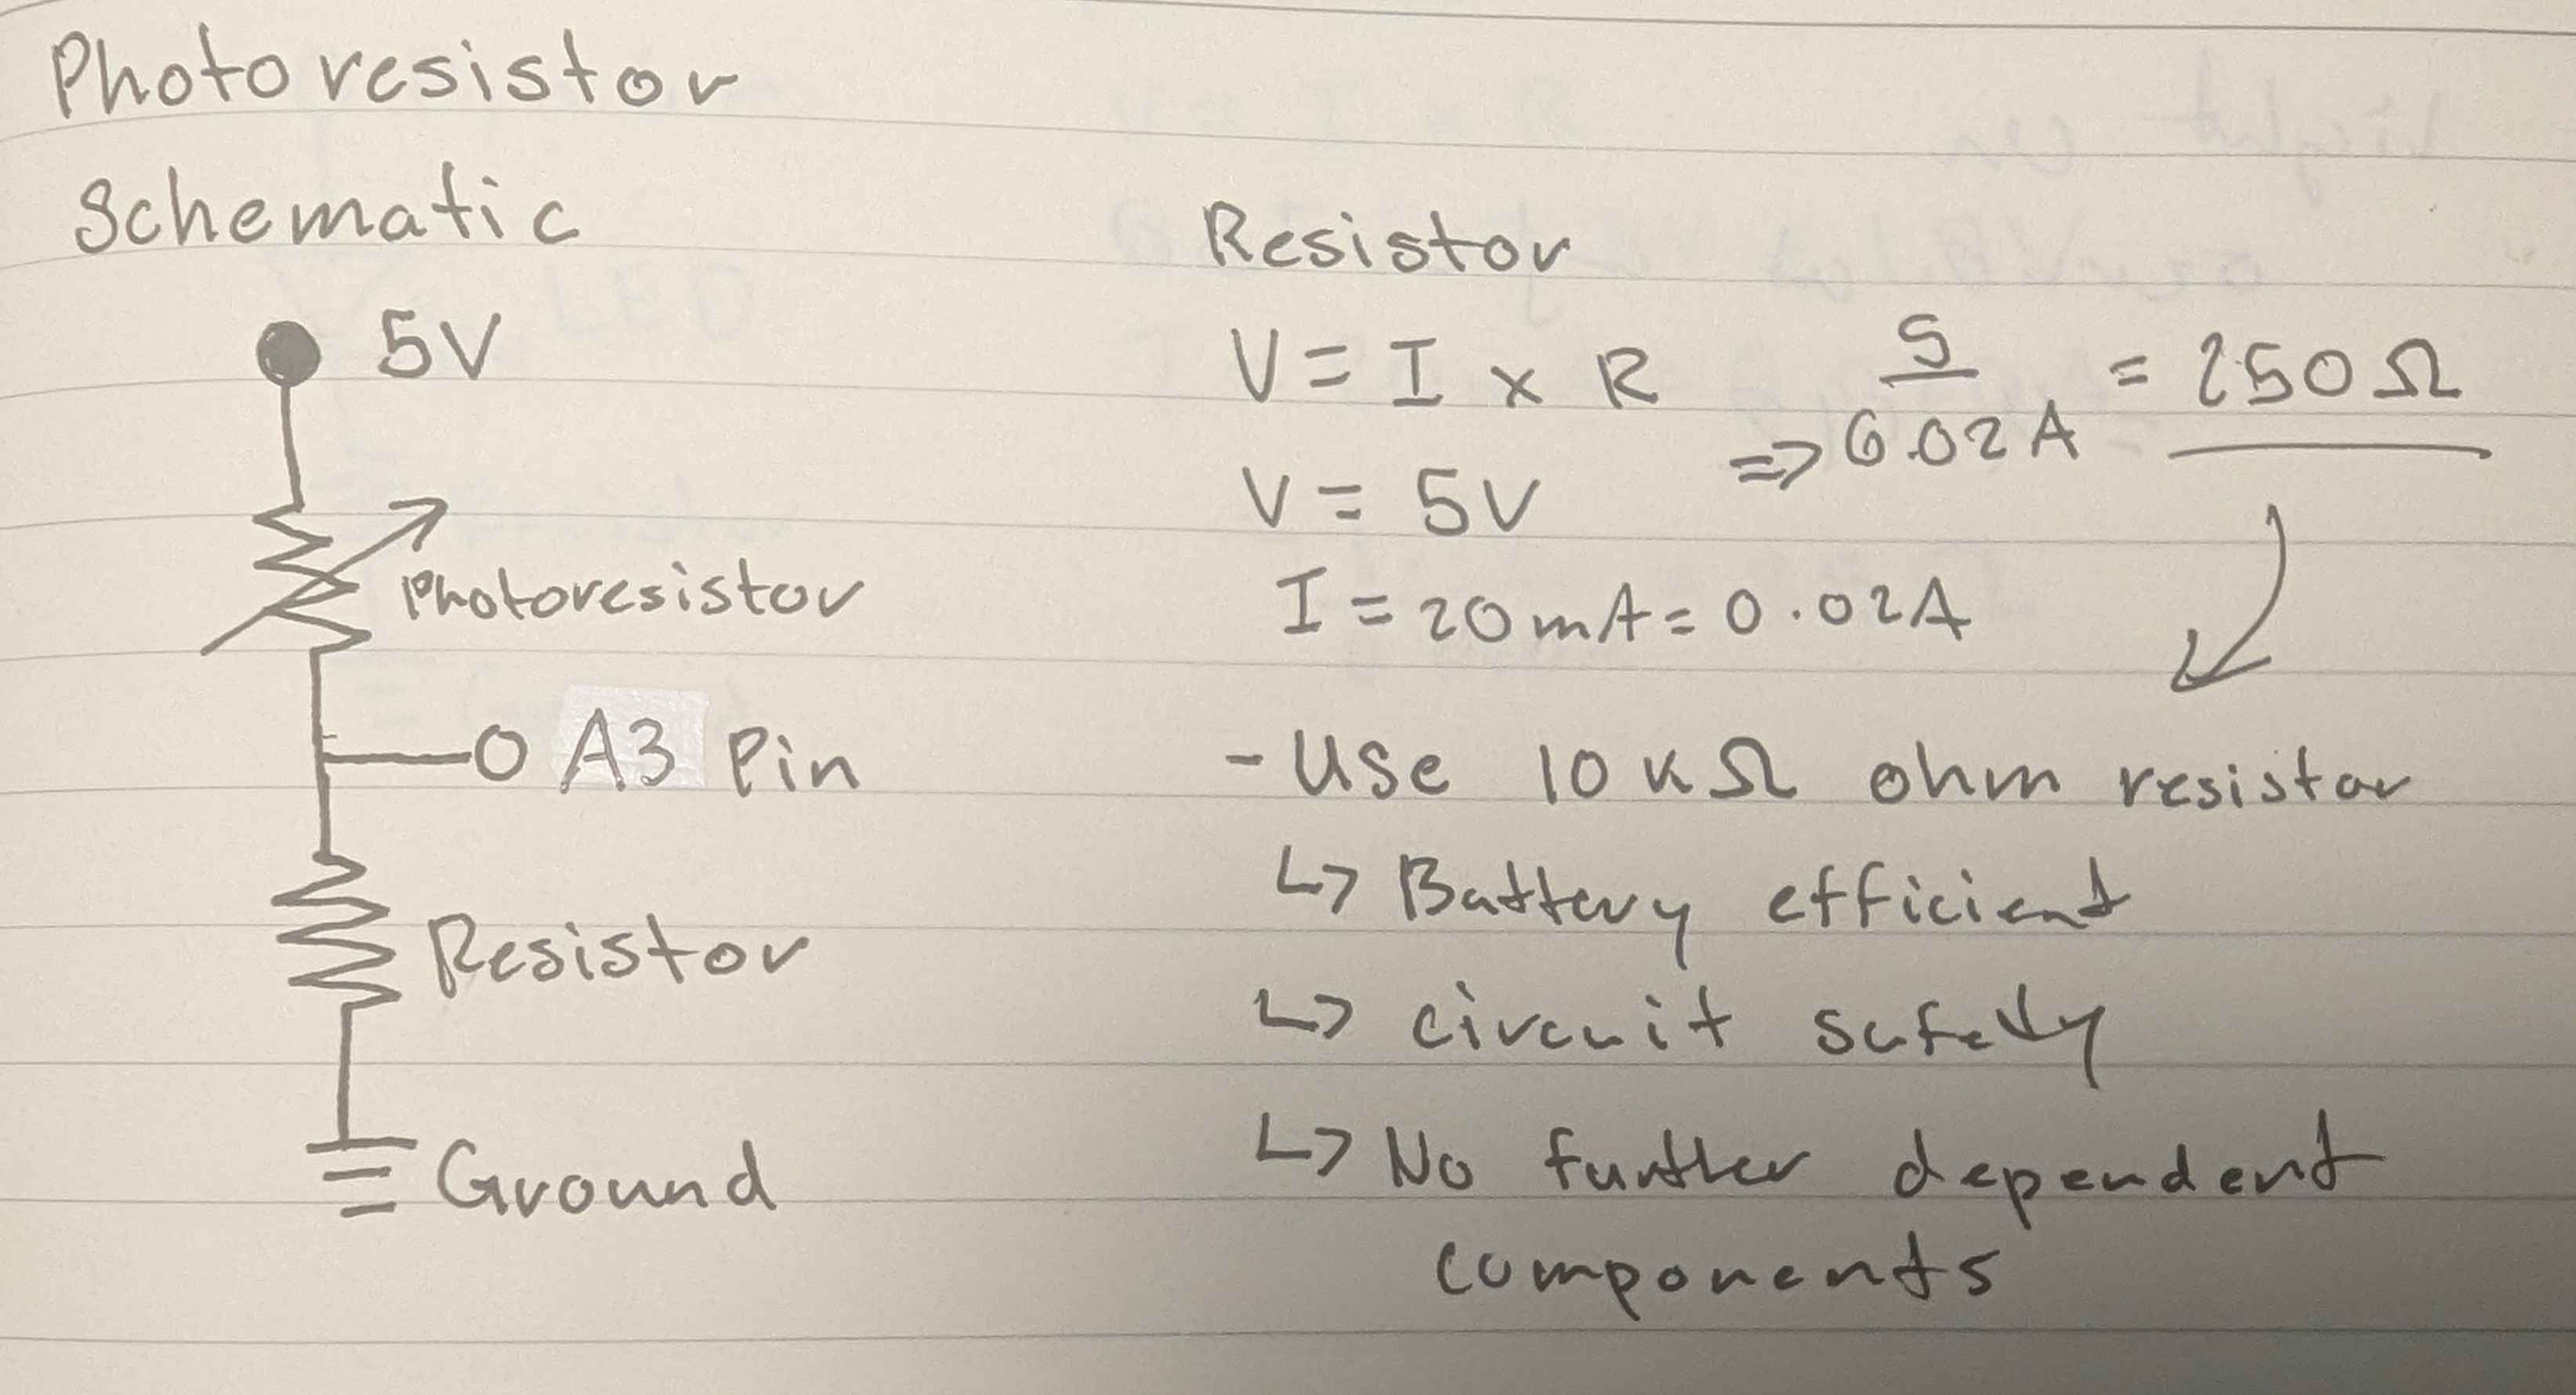 Photoresistor
Schematic
5V
Photoresistor
A3 Pin
Resistor
Ground
Resistor
V = I x R
5
=> 0.02A = 250Ω
V = 5V
I = 20mA = 0.02A
- Use 10kΩ ohm resistor
↳ Battery efficient
↳ circuit safety
↳ No further dependent
components